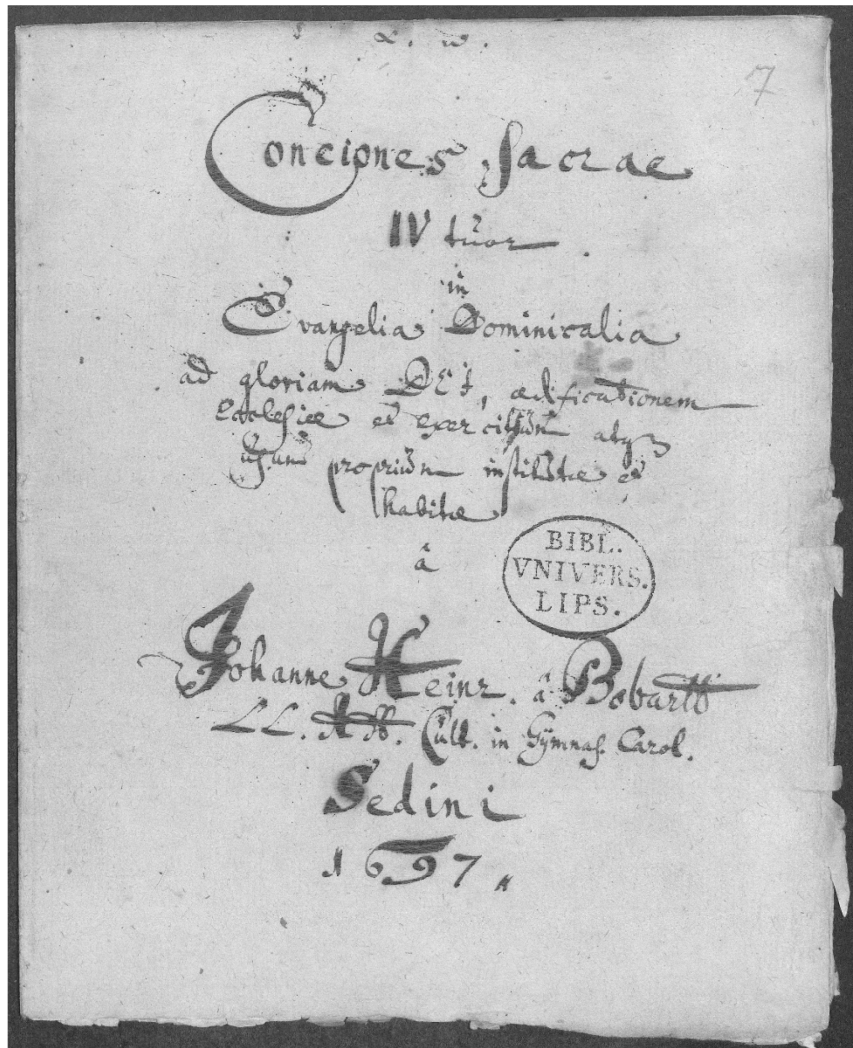 α. ω.
7
Conciones Sacrae
IV tuor
in
Evangelia Dominicalia
ad gloriam DEI, aedificationem
Ecclesiae et exercitium atq
usum proprium institutae et
habitae
â
BIBL.
VNIVERS.
LIPS.
Johanne Heinr. â Bobartt
LL. AA. Cult. in Gÿmnas. Carol.
Sedini
1697